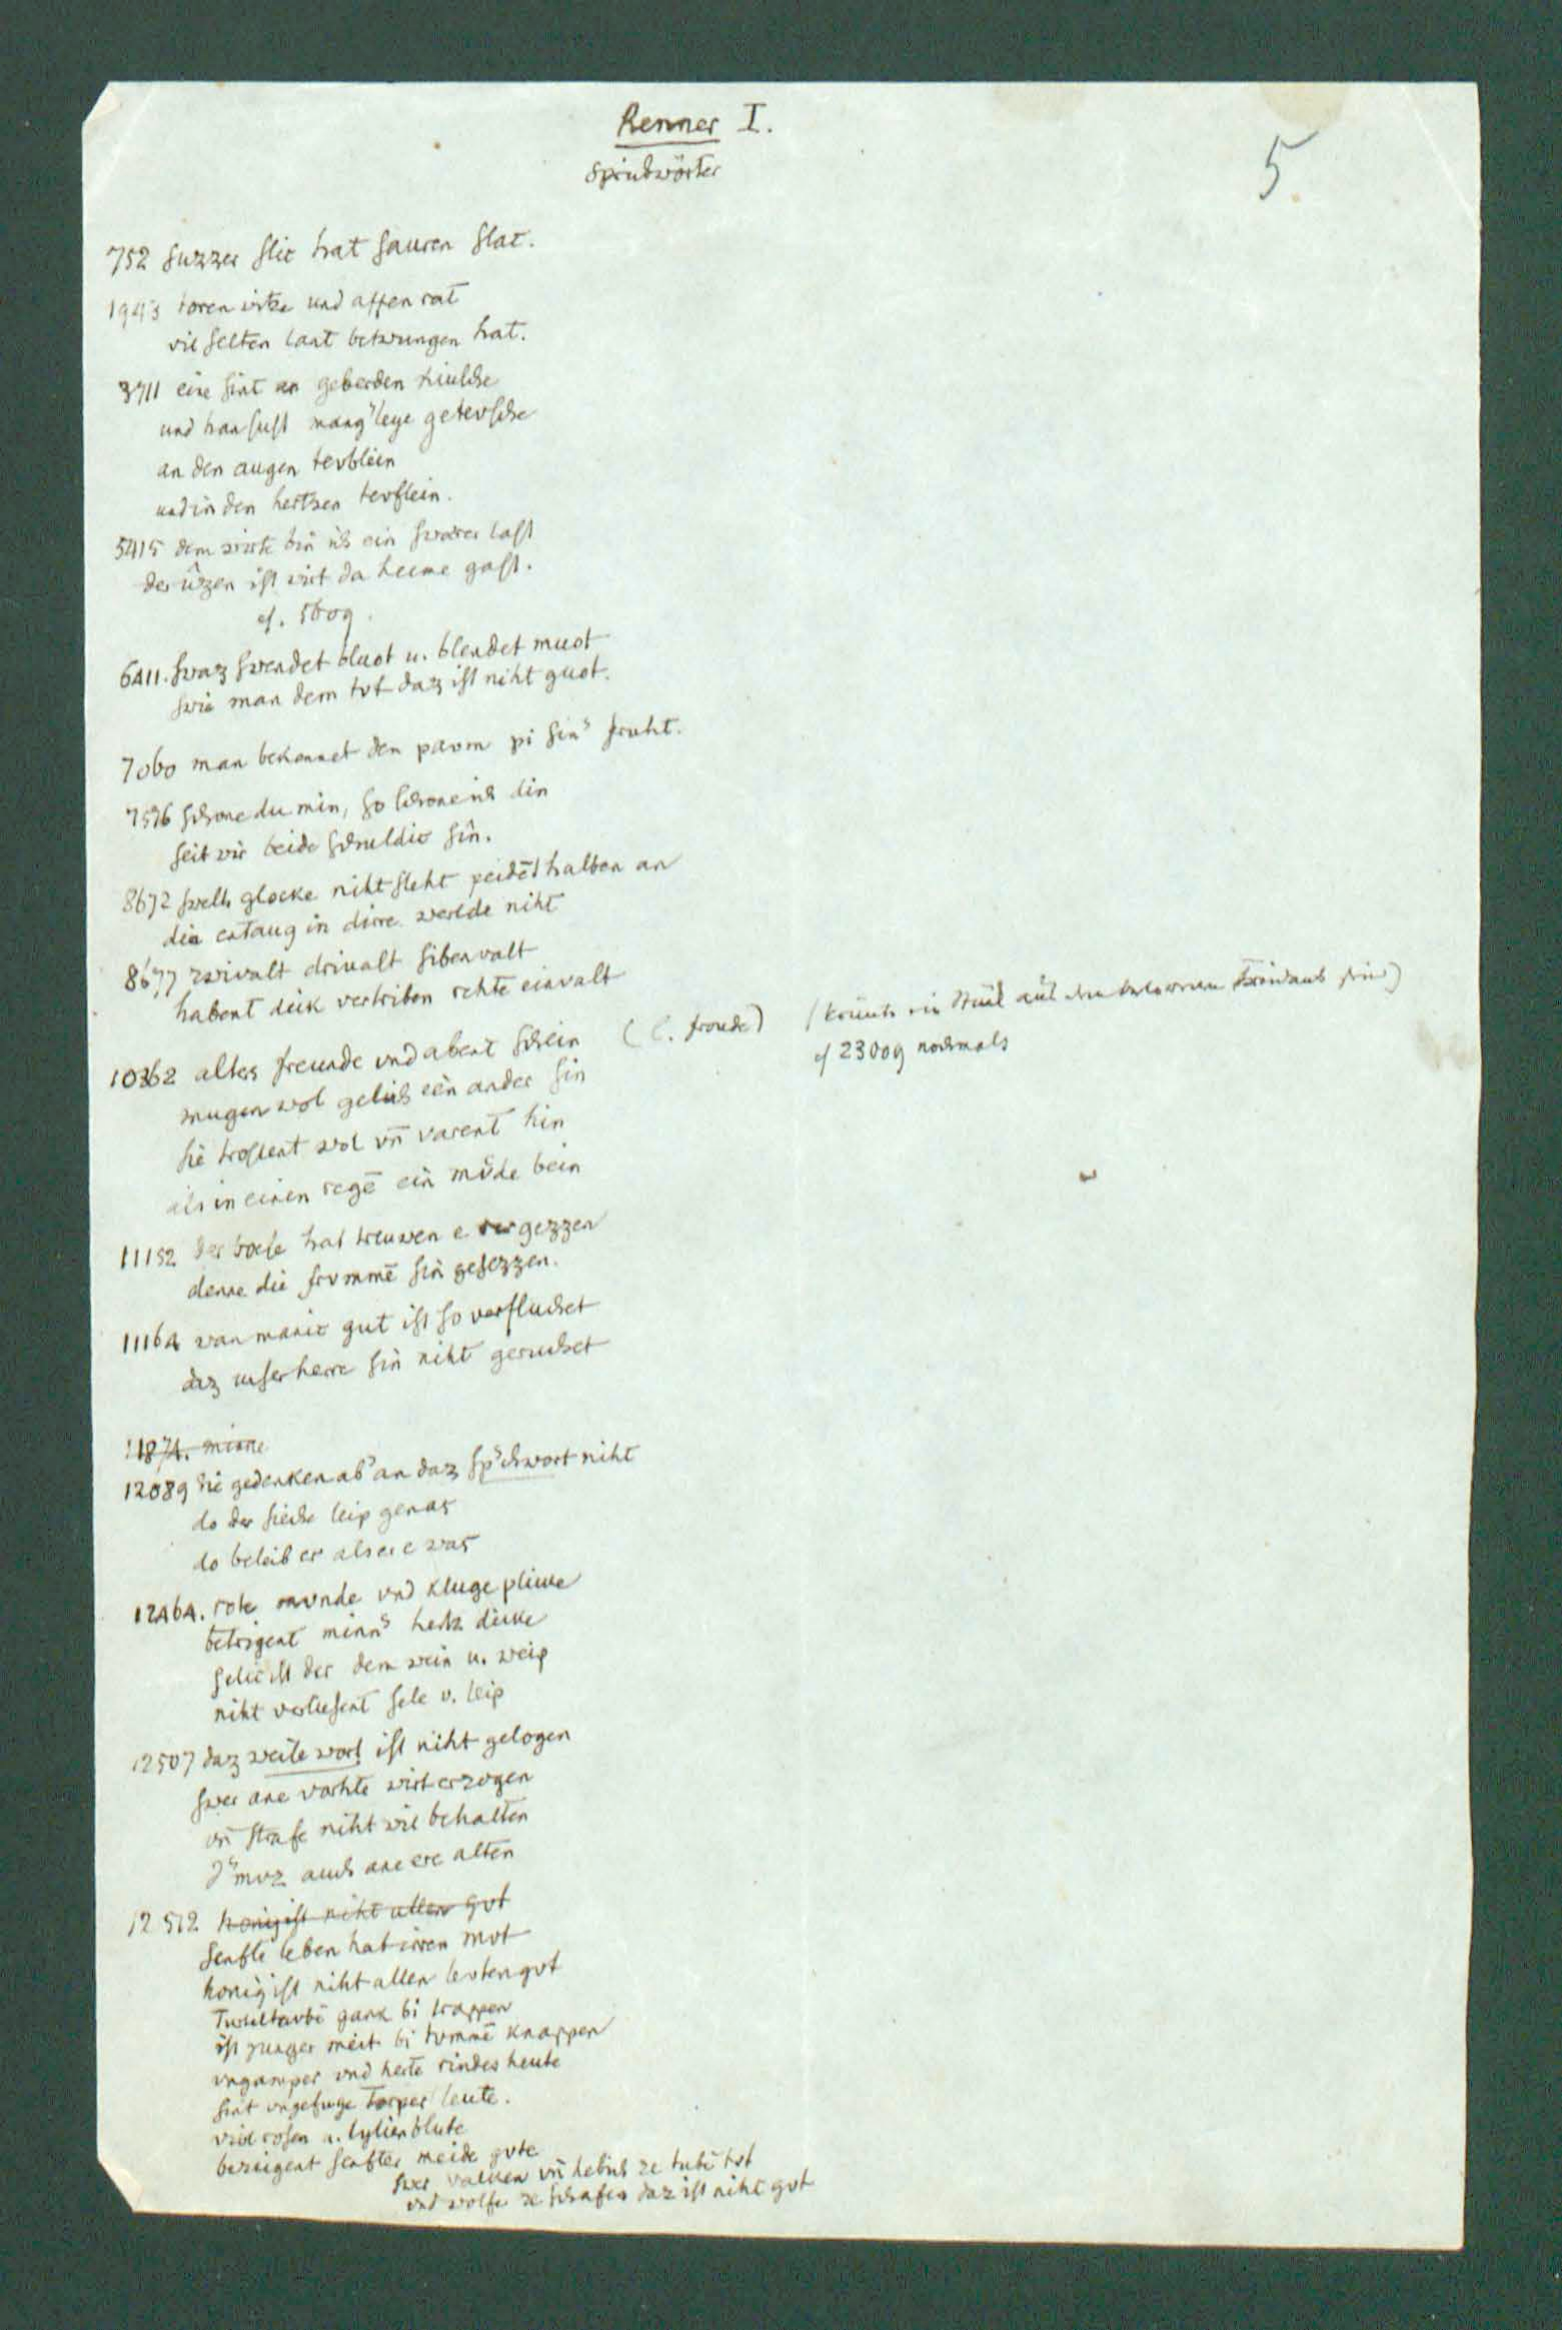 Renner I.
Sprichwörter
5
752 suzzer slic hat sauren slac.
1943 toren witze und affen rat
vil selten lant betwungen hat.
3711 eine sint an geberden kiusche
und han sust mang'leye getevsche
an den augen tevblein
und in den hertzen tevflein.
5415 dem wirte bin ich ein swarer last
der ûzen ist wirt da heime gast.
cf. 5609.
6411. swaz swendet bluot u. blendet muot
swie man dem tvt daz ist niht guot.
7060 man bekennet den pavm pi sin' fruht.
7576 schone du min, so schone ich din
seit wir beide schuldic sin.
8672 swelh glocke niht sleht peidēthalben an
die entaug in dirre werlde niht
8677 zwivalt drivalt sibenvalt
habent dick vertriben rehte einvalt
10362 alters freunde vnd abent schein (l. froude) (könnte ein Stück aus dem verlorenen Freidank sein)
mugen wol gelich ein ander sin cf 23009 nochmals
sie trostent wol vn̄ varent hin
als in einen regē ein müde bein
11152 der boese hat treuwen e vergezzen
denne die frvmmē sin gesezzen.
11164 wan manic gut ist so verfluchet
daz unser herre sin niht geruchet
11874. minne
12089 sie gedenken ab' an daz sp'chwort niht
do der sieche leip genas
do beleib er als er e was
12464. rote mvnde vnd kluge plicke
betrigent minn' hertz dicke
selic ist der dem wein u. weip
niht verliesent sele v. leip
12507 daz weite wort ist niht gelogen
swer ane vorhte wirt erzogen
vn̄ strafe niht wil behalten
d' mvz auch ane ere alten
12512 honig ist niht allen gvt
senfte leben hat irren mvt
honig ist niht allen levten gvt
Turteltavbē gank bi trappen
ist junger meit bi tvmmē knappen
vngamper vnd herte rindes heute
sint ungefuge torper leute.
viol rosen u. lylien blute
bezeigent senfter meide gvte
swer valken vn̄ hebich ze tubē tvt
vnd wolfe ze schafen daz ist niht gvt